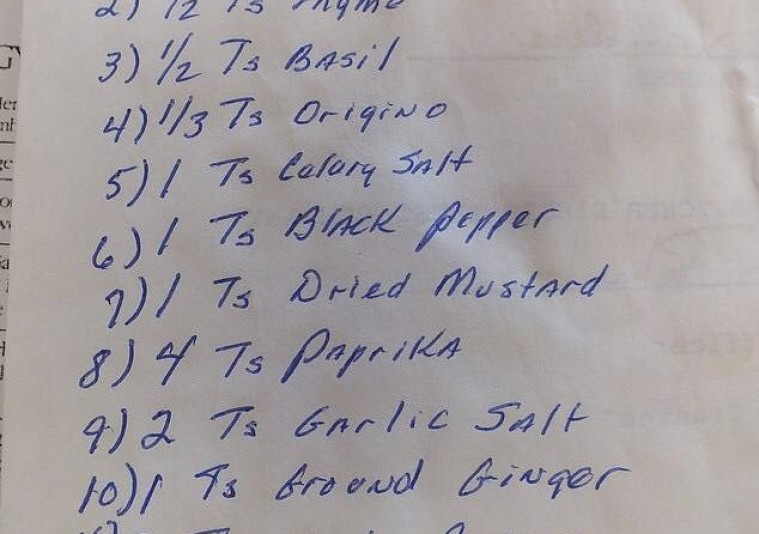 2) 1/2 Ts Thyme
3) 1/2 Ts Basil
4) 1/3 Ts Origino
5) 1 Ts Calary Salt
6) 1 Ts Black Pepper
7) 1 Ts Dried Mustard
8) 4 Ts Paprika
9) 2 Ts Garlic Salt
10) 1 Ts Ground Ginger